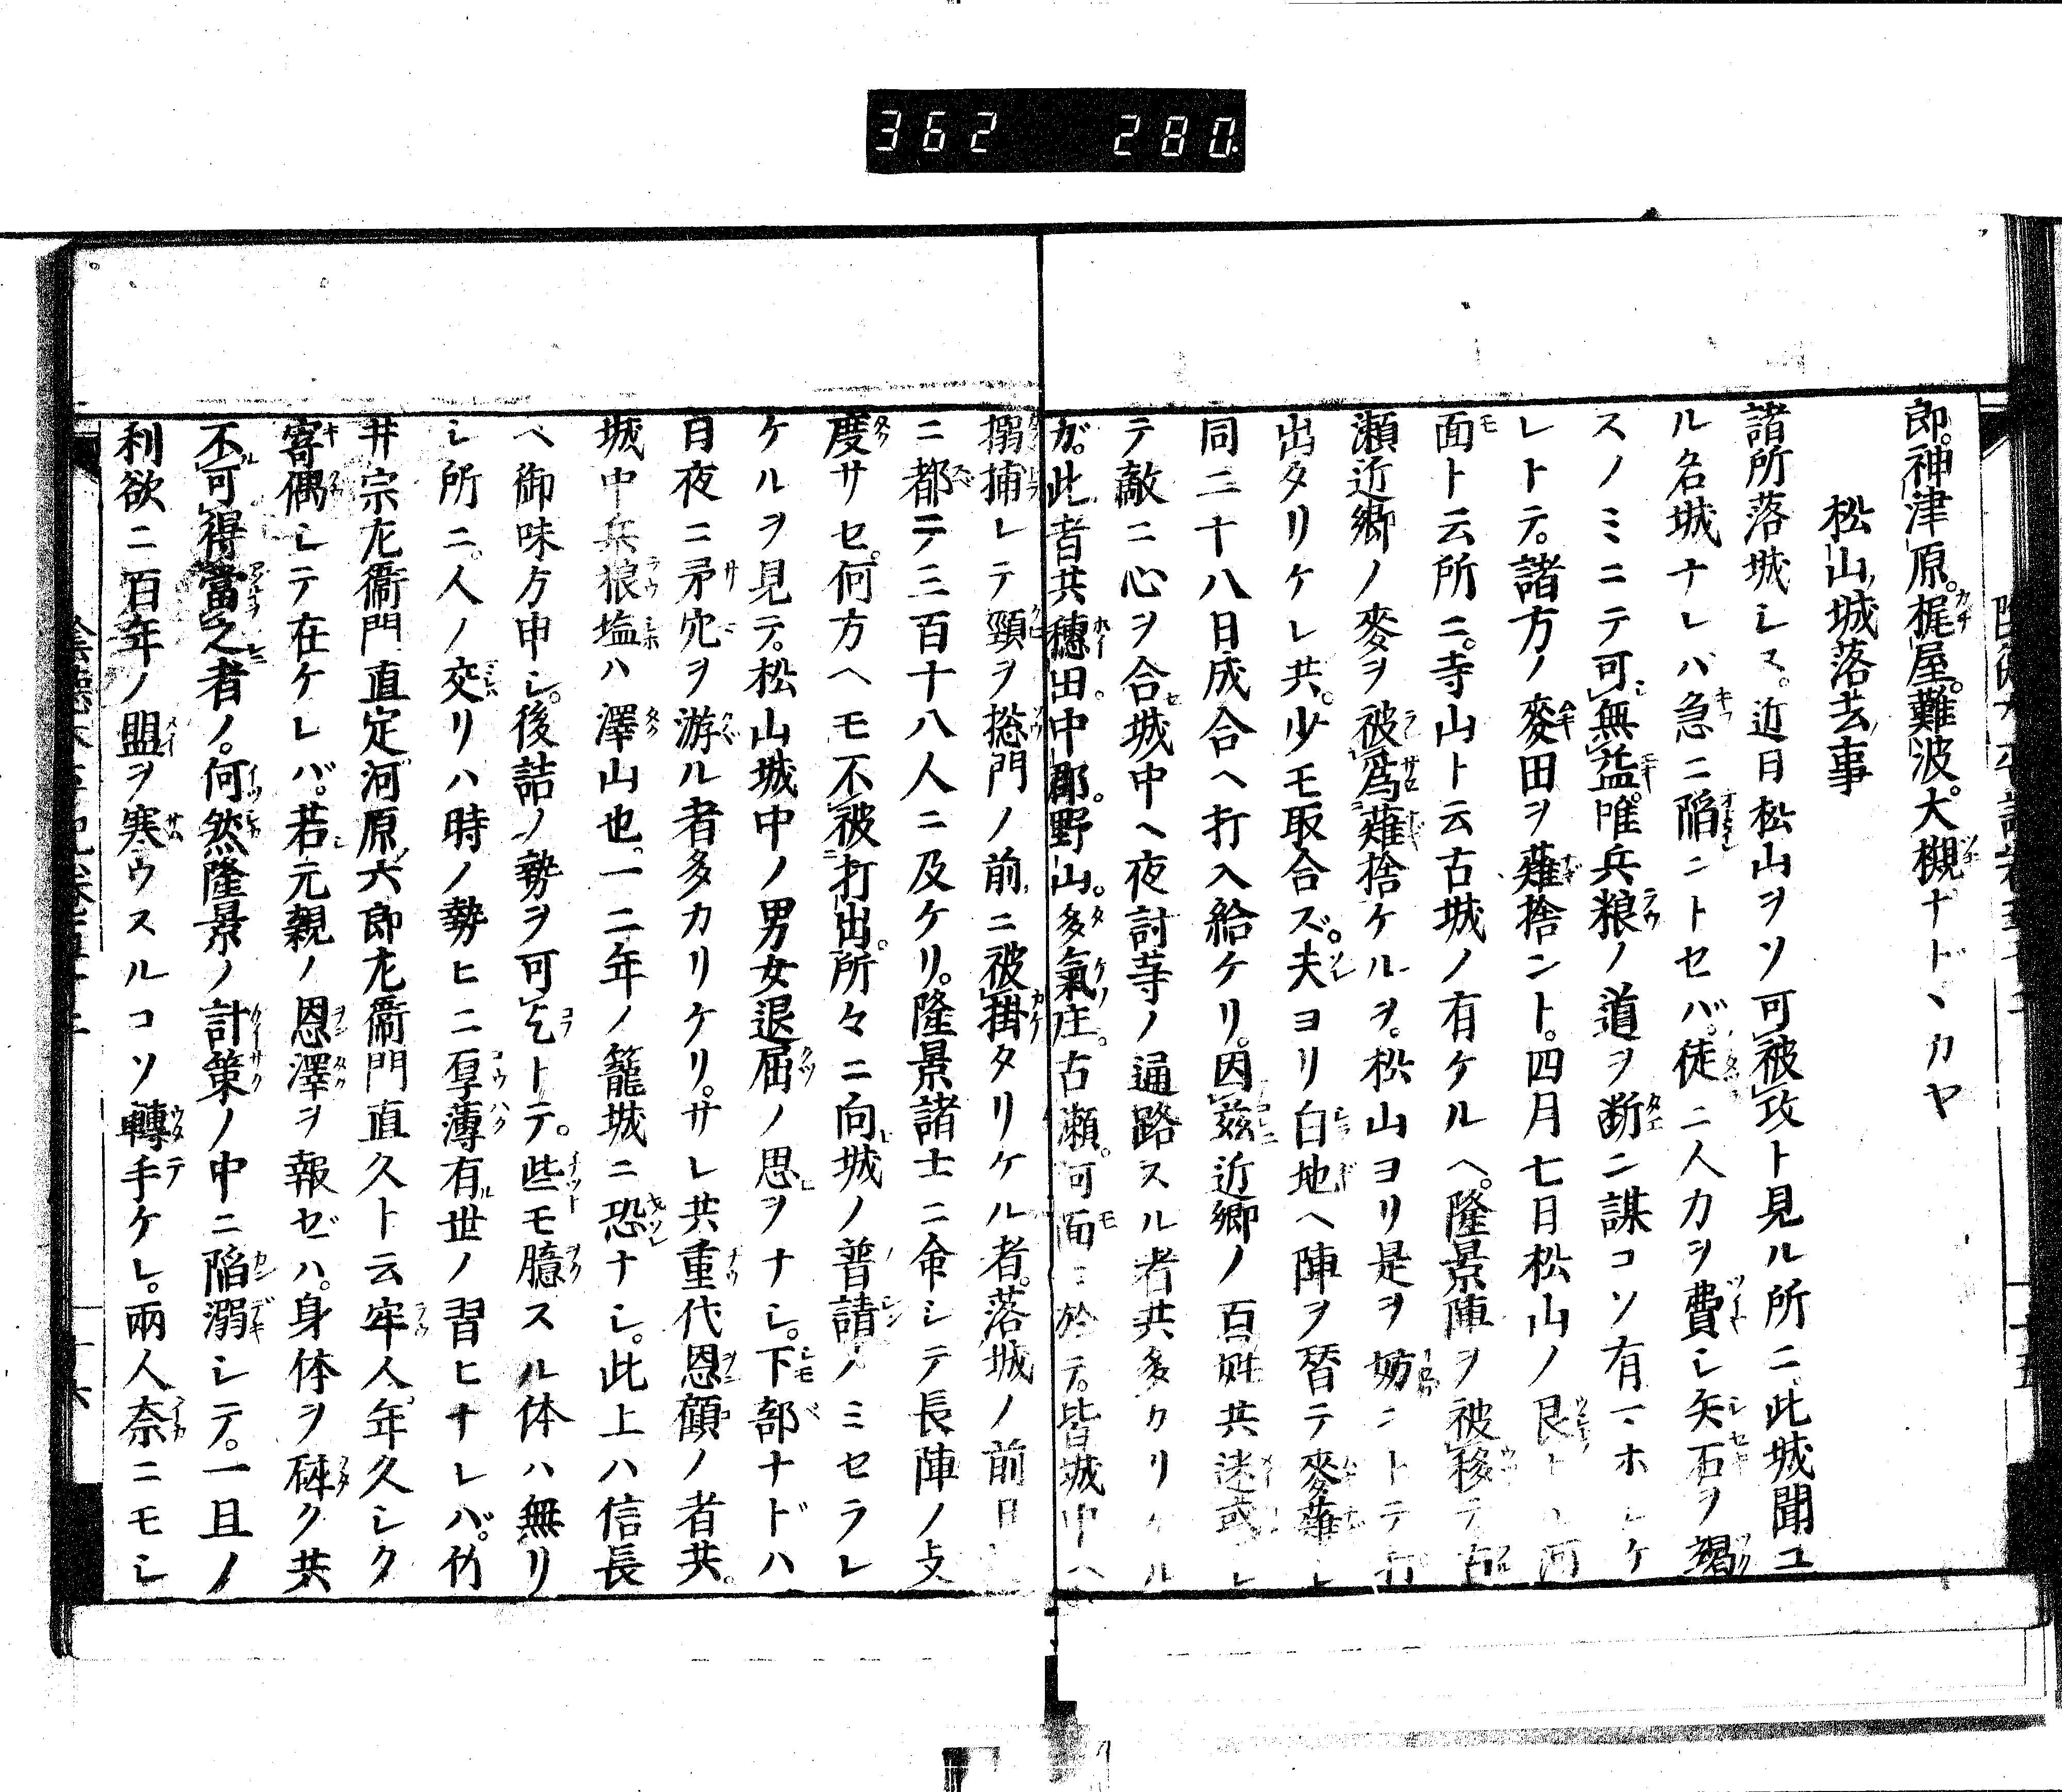 362 280.
郎。神津原。梶屋。難波。大槻ナド丶カヤ
松山城落去事
諸所落城シヌ。近日松山ヲソ可被攻ト見ル所ニ。此城聞ユ
ル名城ナレバ急ニ陥ニトセバ。徒ニ人力ヲ費シ矢石ヲ竭
スノミニテ可無益。唯兵粮ノ道ヲ断ニ謀コソ有マホシケ
レトテ。諸方ノ麥田ヲ薙捨ント。四月七日松山ノ艮ト丶河
面ト云所ニ。寺山ト云古城ノ有ケルヘ。隆景陣ヲ被移テ
瀬近郷ノ麥ヲ被為薙捨ケルヲ。松山ヨリ是ヲ妨ントテ打
出タリケレ共。少モ取合ズ。夫ヨリ白地ヘ陣ヲ替テ麥薙レ
同二十八日成合ヘ打入給ケリ。因玆近郷ノ百姓共迷惑シ
テ敵ニ心ヲ合城中ヘ夜討等ノ通路スル者共多クリケル
ガ。此者共穗田。中郡。野山。多氣庄。古瀬。河面ニ於テ。皆城中ヘ
搦捕レテ頸ヲ捴門ノ前ニ被掛タリケル者。落城ノ前日
ニ都テ三百十八人ニ及ケリ。隆景諸士ニ命シテ長陣ノ支
度サセ。何方ヘモ不被打出。所々ニ向城ノ普請ノミセラレ
ケルヲ見テ。松山城中ノ男女退屈ノ思ヲナシ。下部ナドハ
日夜ニ矛穴ヲ游ル者多カリケリ。サレ共重代恩顧ノ者共。
城中兵狼塩ハ澤山也。一二年ノ籠城ニ恐ナシ。此上ハ信長
ヘ御味方申シ。後詰ノ勢ヲ可乞トテ。些モ臆スル体ハ無リ
シ所ニ。人ノ交リハ時ノ勢ヒニ厚薄有世ノ習ヒナレバ。竹
井宗左衞門直定河原六郎左衞門直久ト云牢人。年久シク
寄偶シテ在ケレバ。若元親ノ恩澤ヲ報ゼハ。身体ヲ砕ク共
不可得當之者ノ。何然隆景ノ計策ノ中ニ陥溺シテ。一旦ノ
利欲ニ百年ノ盟ヲ寒ウスルコソ轉手ケレ。兩人奈ニモシ